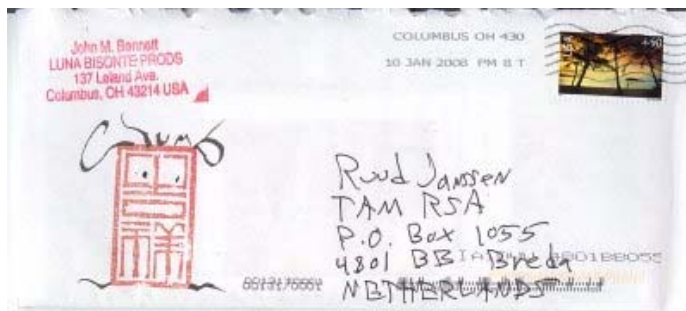 John M. Bennett
LUNA BISONTE PRODS
137 Leland Ave.
Columbus, OH 43214 USA
COLUMBUS OH 430
10 JAN 2008 PM 8 T
吉祥
Ruud Janssen
TAM RSA
P.O. Box 1055
4801 BB Breda
NETHERLANDS